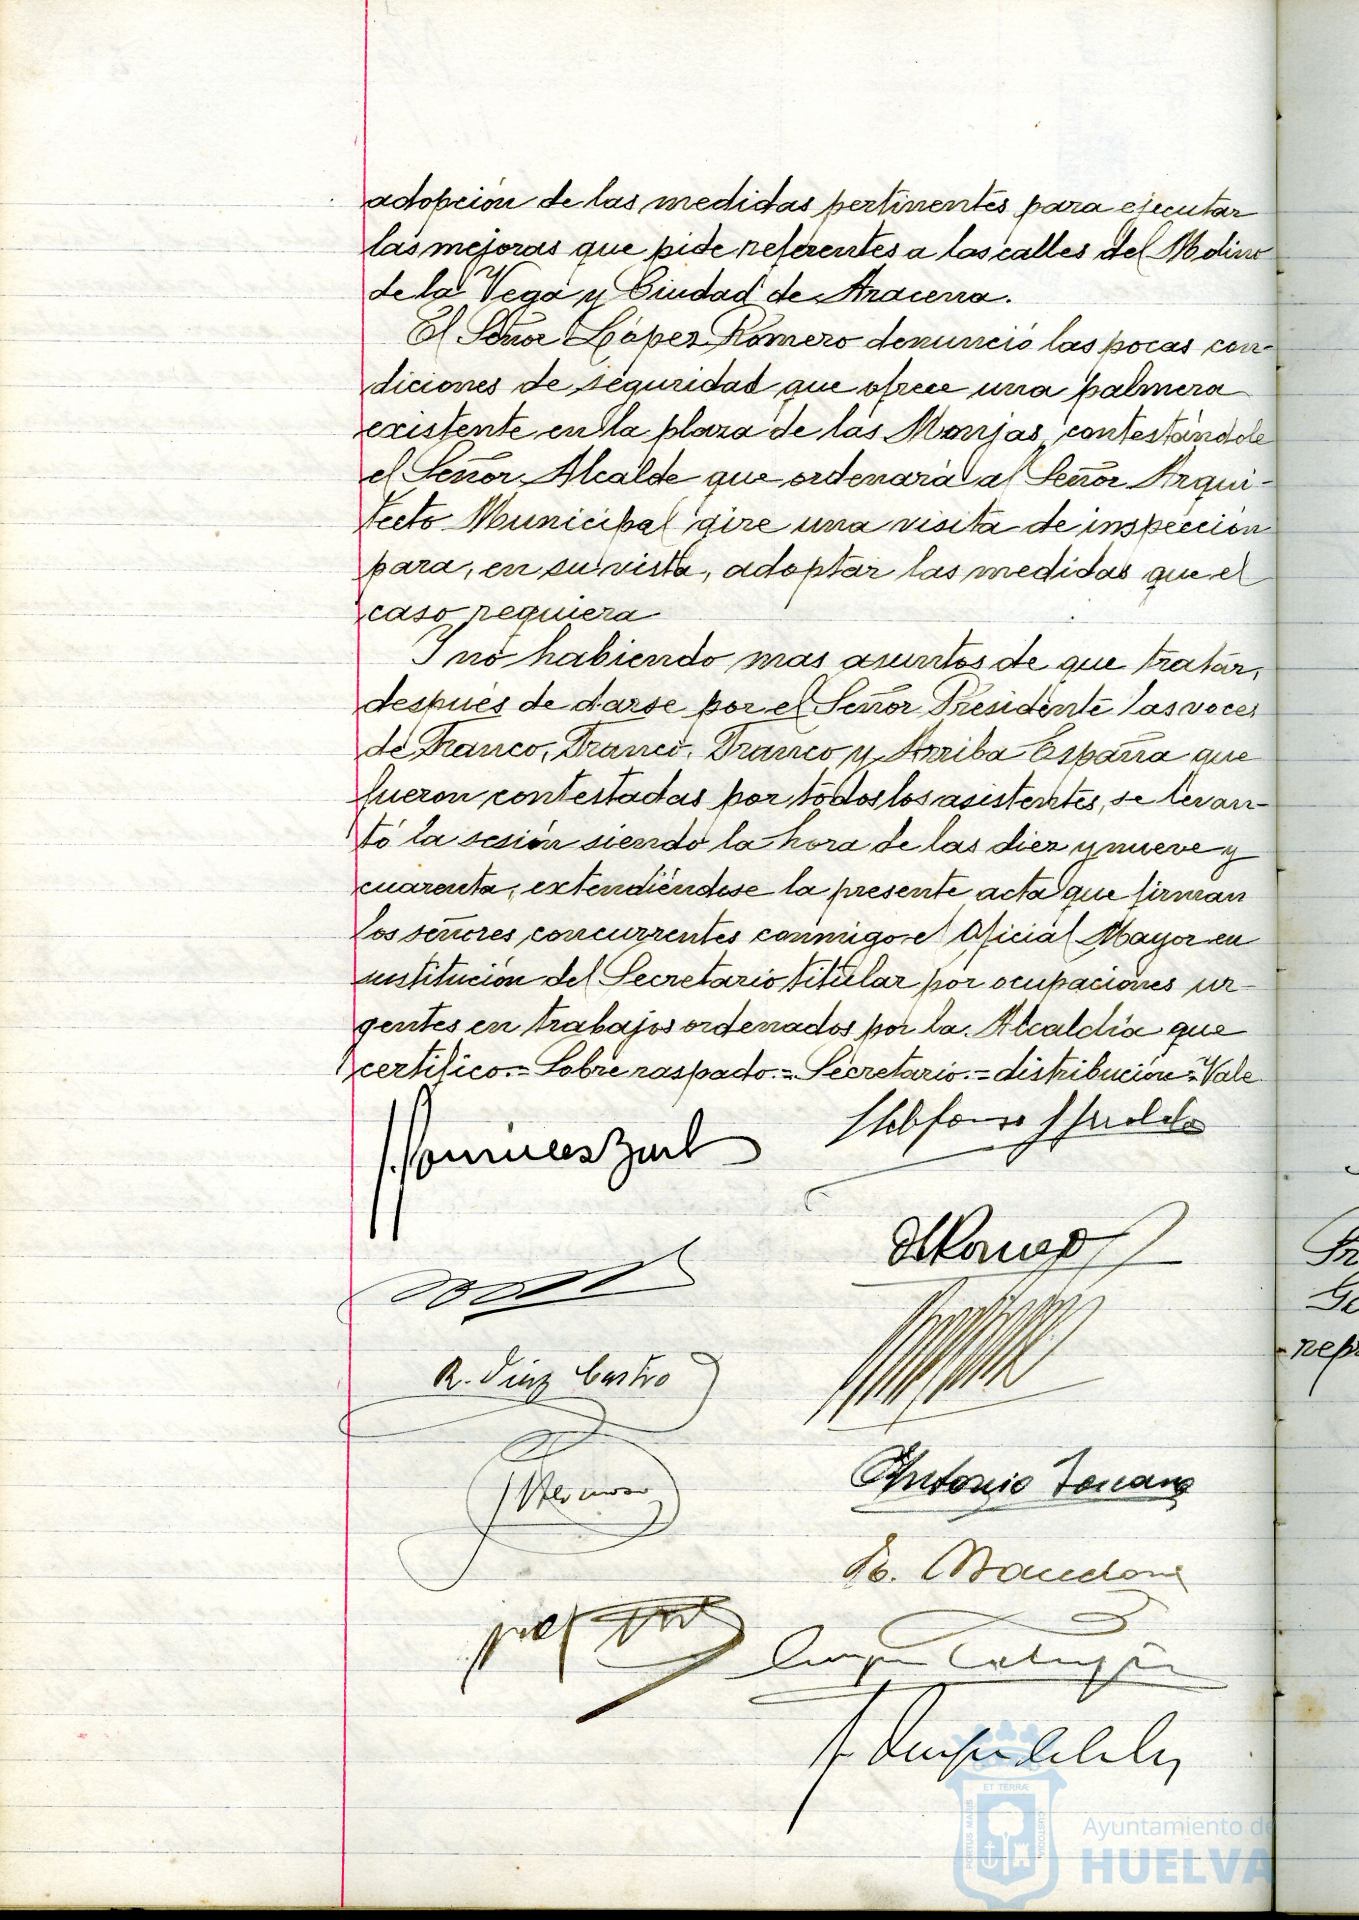 adopción de las medidas pertinentes para ejecutar
las mejoras que pide referentes a las calles del Molino
de la Vega y Ciudad de Aracena.
El Señor López Romero denunció las pocas con-
diciones de seguridad que ofrece una palmera
existente en la plaza de las Monjas, contestándole
el Señor Alcalde que ordenará al Señor Arqui-
tecto Municipal gire una visita de inspección
para, en su vista, adoptar las medidas que el
caso requiera
Y no habiendo mas asuntos de que tratar,
después de darse por el Señor Presidente las voces
de Franco, Franco, Franco y Arriba España que
fueron contestadas por todos los asistentes, se levan-
tó la sesión siendo la hora de las diez y nueve y
cuarenta, extendiéndose la presente acta que firman
los señores concurrentes conmigo el Oficial Mayor en
sustitución del Secretario titular por ocupaciones ur-
gentes en trabajos ordenados por la Alcaldía que
certifico.= Sobre raspado.= Secretario.= distribución= Vale
R. Diaz Castro
Antonio
ET TERRÆ
PORTUS MARIS
CUSTODIA
Ayuntamiento de
HUELVA